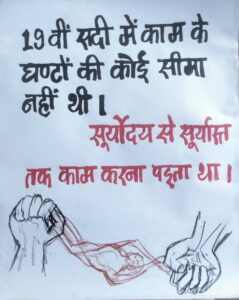 19वीं सदी में काम के
घण्टों की कोई सीमा
नहीं थी।
सूर्योदय से सूर्यास्त
तक काम करना पड़ता था।